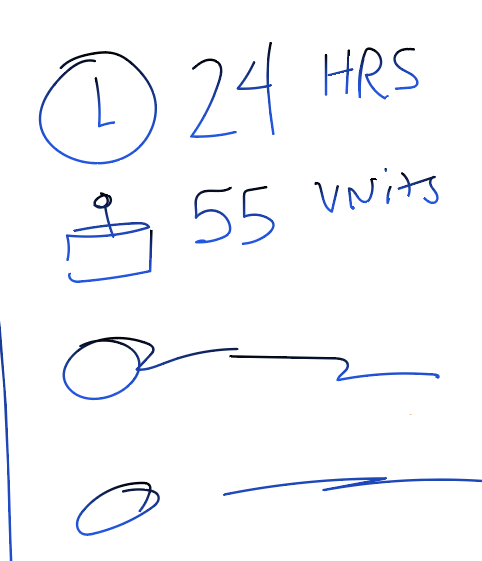 24 HRS
55 UNits